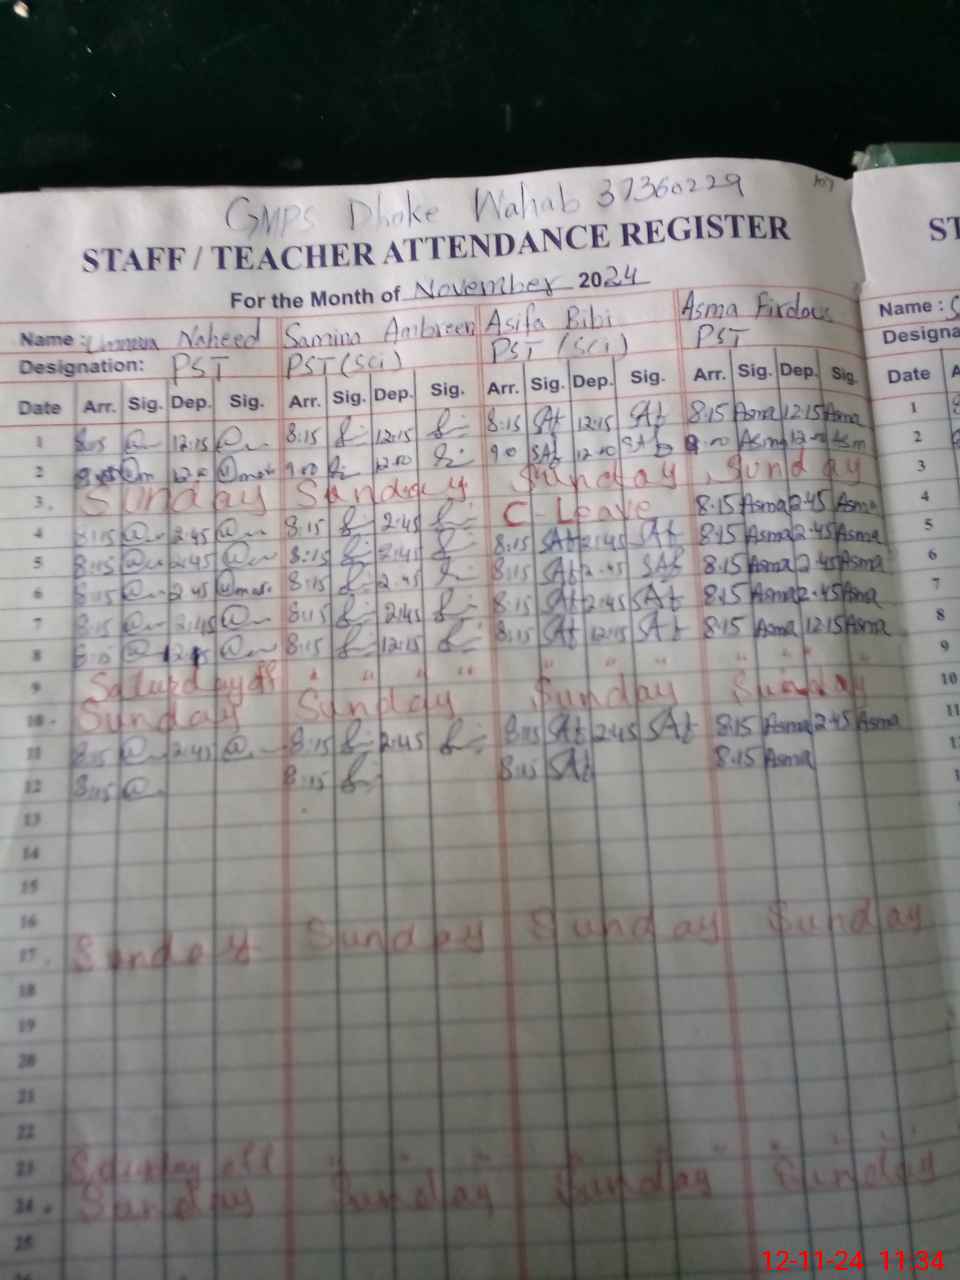 GMPS Dhoke Wahab 37360229
STAFF / TEACHER ATTENDANCE REGISTER
ST
For the Month of November 2024
Name : Naheed Samina Ambreen Asifa Bibi Asma Firdous
Name :
Designation: PST PST (Sci) PST (Sci) PST
Designa
Date Arr. Sig. Dep. Sig. Arr. Sig. Dep. Sig. Arr. Sig. Dep. Sig. Arr. Sig. Dep. Sig. Date
1 8:15 12:15 8:15 12:15 8:15 SAt 12:15 SAt 8:15 Asma 12:15 Asma 1
2 12:00 9:00 12:00 9:00 SAt 12:00 Asma 12:00 Asm 2
3. Sunday Sunday Sunday Sunday 3
4 8:15 2:45 8:15 2:45 C-Leave 8:15 Asma 2:45 Asma 4
5 8:15 2:45 8:15 2:45 8:15 SAt 2:45 SAt 8:15 Asma 2:45 Asma 5
6 8:15 2:45 8:15 2:45 8:15 SAt 2:45 SAt 8:15 Asma 2:45 Asma 6
7 8:15 2:45 8:15 2:45 8:15 SAt 2:45 SAt 8:15 Asma 2:45 Asma 7
8 8:15 12:15 8:15 12:15 8:15 SAt 12:15 SAt 8:15 Asma 12:15 Asma 8
9 Saturday off " " " " " " " " " 9
10. Sunday Sunday Sunday Sunday 10
11 8:15 2:45 8:15 2:45 8:15 SAt 2:45 SAt 8:15 Asma 2:45 Asma 11
12 8:15 8:15 8:15 SAt 8:15 Asma
13
14
15
16
17. Sunday Sunday Sunday Sunday
18
19
20
21
22
23 Saturday off " " " " " "
24. Sunday Sunday Sunday Sunday
25
12-11-24 11:34